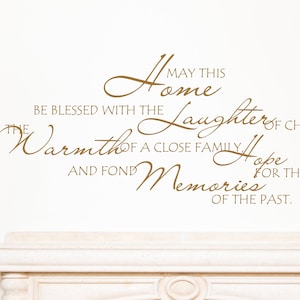 MAY THIS
Home
BE BLESSED WITH THE Laughter OF CH
THE Warmth OF A CLOSE FAMILY Hope FOR TH
AND FOND Memories
OF THE PAST.